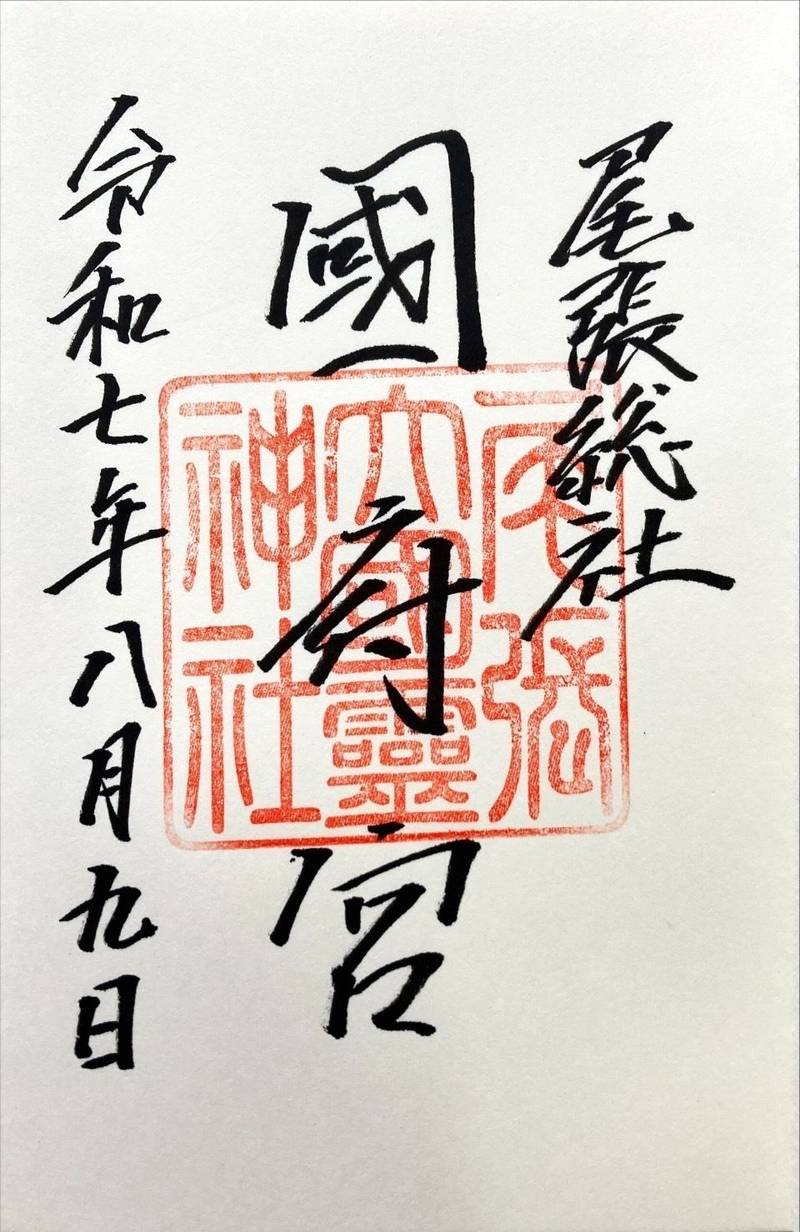 尾張総社
國府宮
尾張
大國靈
神社
令和七年八月九日